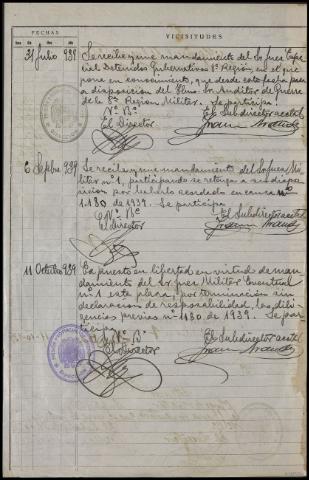 FECHAS
VICISITUDES
31 Julio 939
Se recibe y une mandamiento del Sr Juez Espe
cial Detenidos Gubernativos 1ª Región en el que
pone en conocimiento, que desde esta fecha pasa
a disposicion del Ilmo. Sr Auditor de Guerra
de la 8ª Region Militar. Se participa.
Vº Bº
El Subdirector acctal
El Director
6 Sepbre 939
Se recibe y une mandamiento del Sr Juez Mi
litar nº 1, participando se retenga a su dispo
sicion por haberlo acordado en causa nº
1.180 de 1939. Se participa
Vº Bº
El Subdirector acctal
El Director
11 Octubre 939
Es puesto en libertad en virtud de man
damiento del Sr Juez Militar Eventual
nº 1 esta plaza, por terminacion sin
declaracion de responsabilidad, las dili
gencias previas nº 1180 de 1939. Se par
ticipa
Vº Bº
El Subdirector acctal
El Director